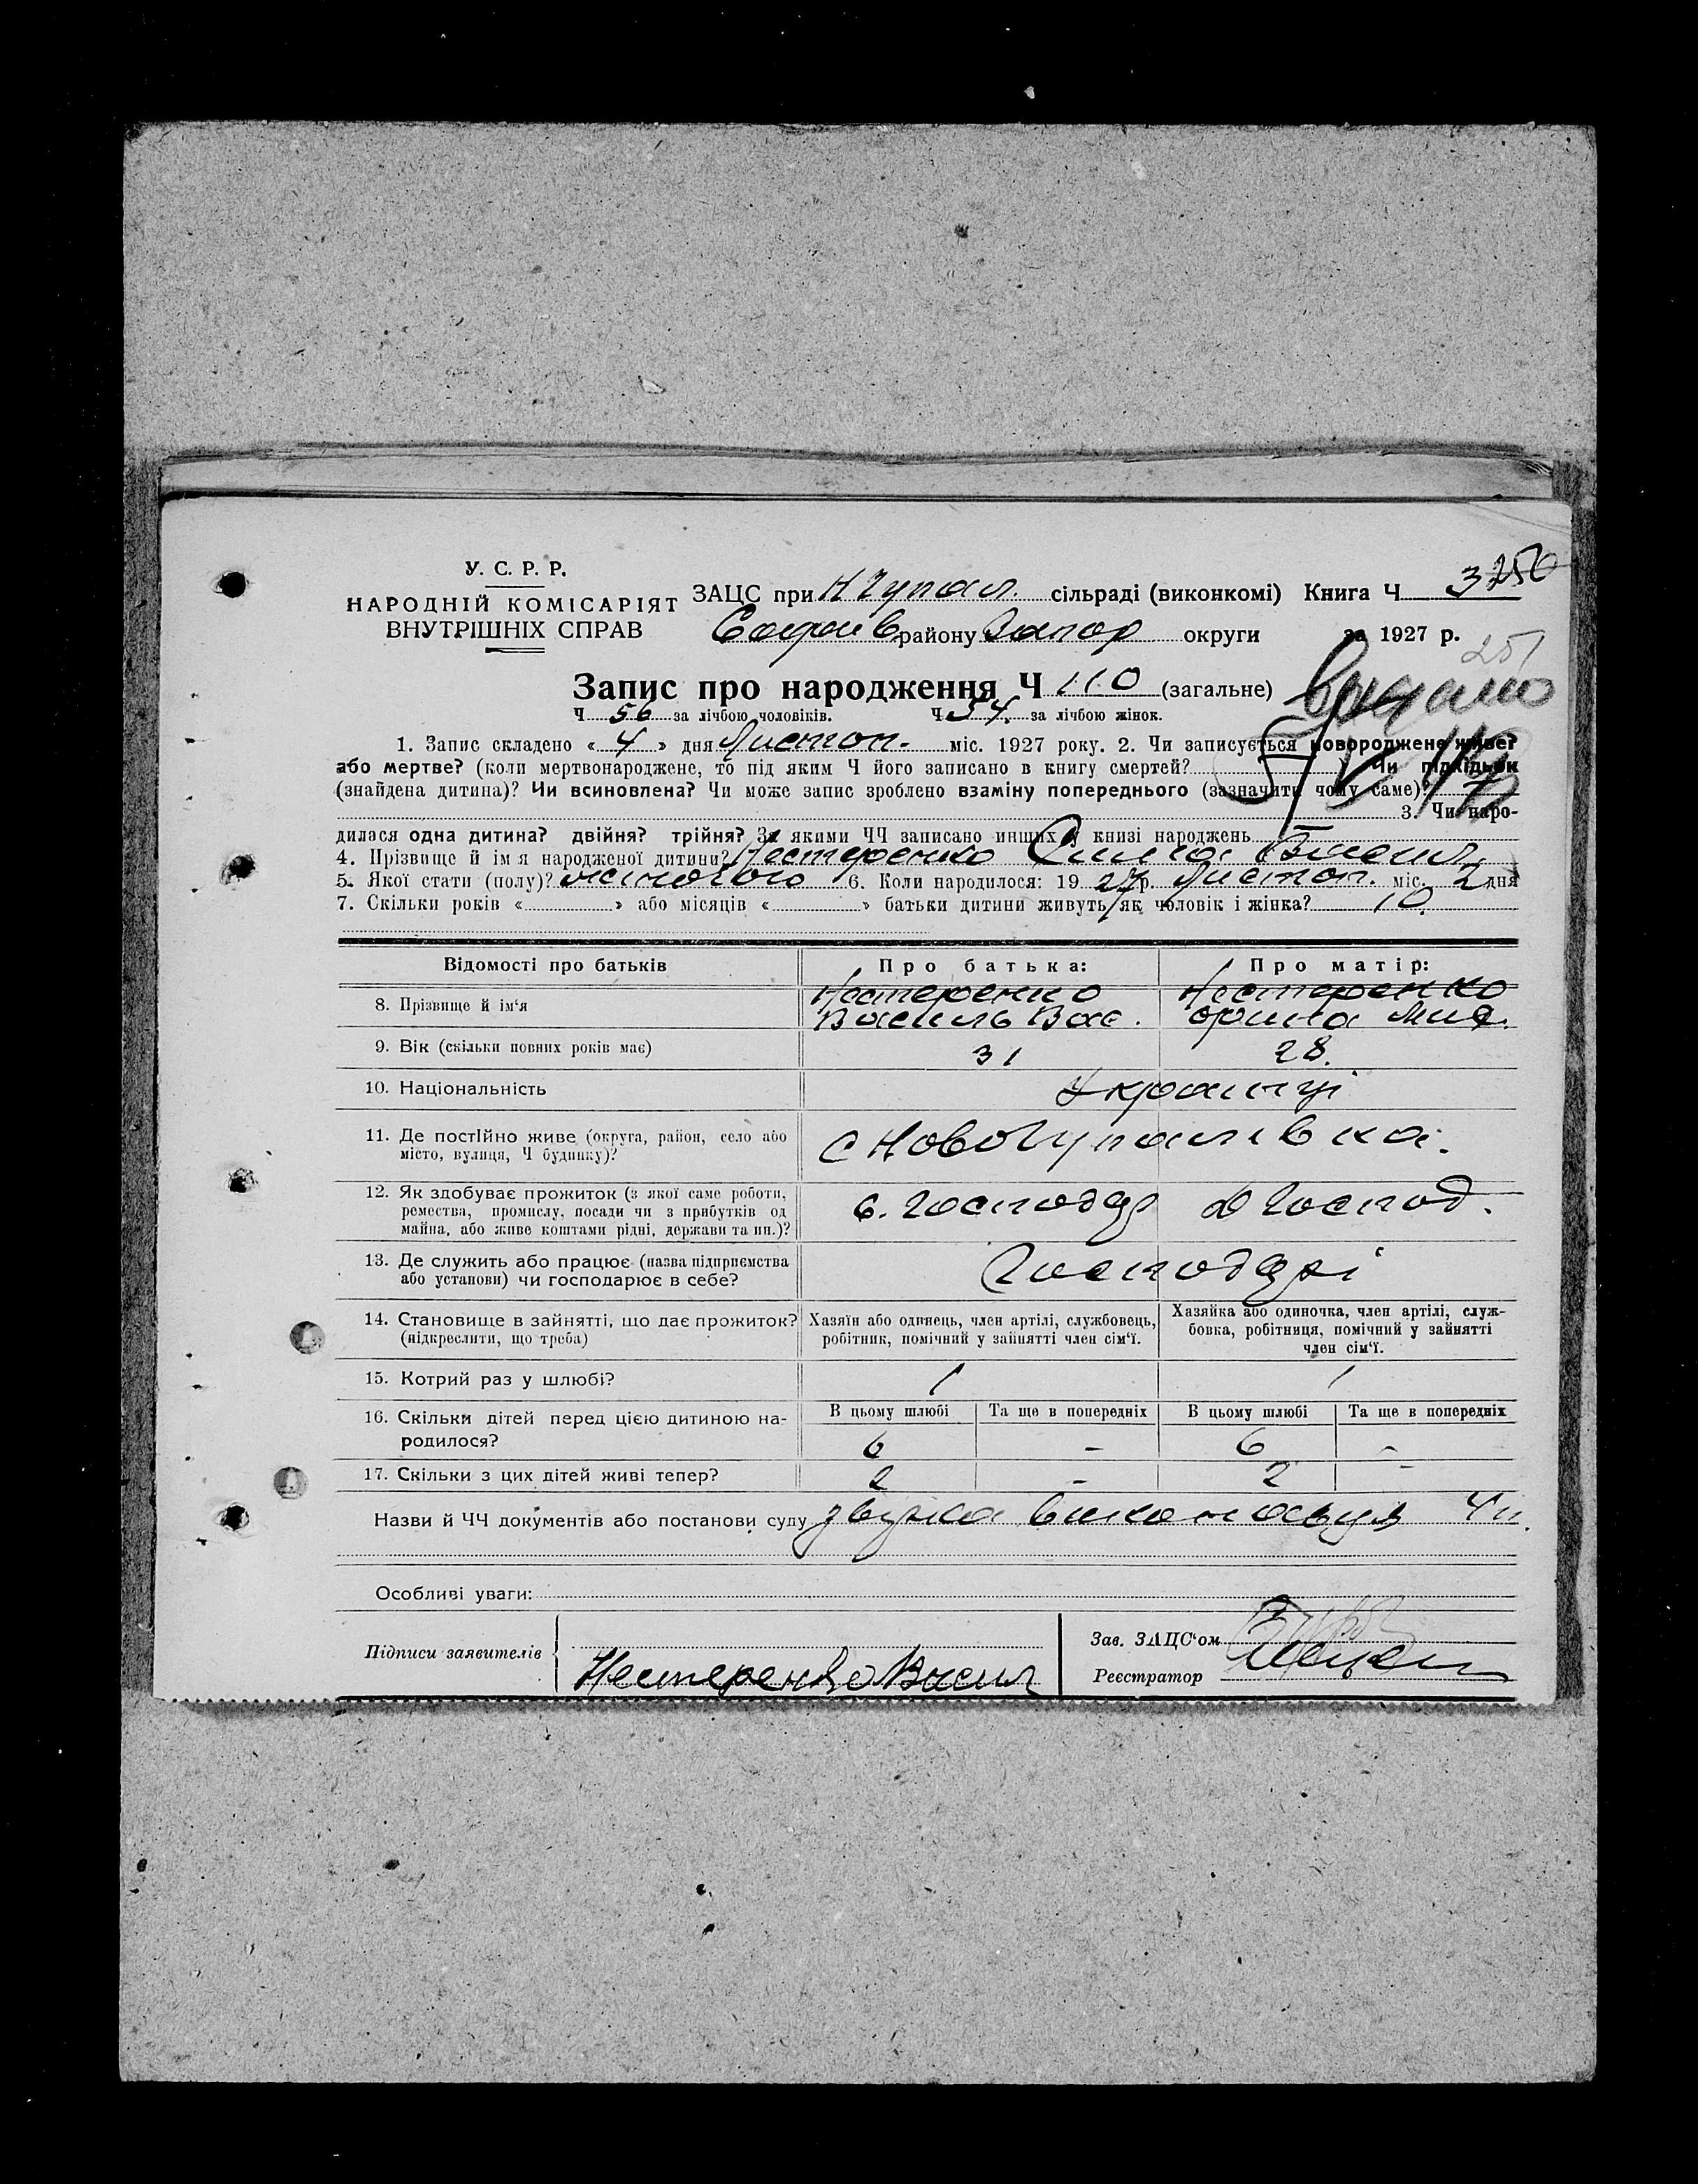 У. С. Р. Р.
НАРОДНІЙ КОМІСАРІЯТ
ВНУТРІШНІХ СПРАВ
ЗАЦС при Н Гупал. сільраді (виконкомі) Книга Ч 3 250
Софиів району Запор округи за 1927 р.
251
Запис про народження Ч 110 (загальне)
видано
Ч 56 за лічбою чоловіків. Ч 54. за лічбою жінок.
1. Запис складено « 4 » дня Листоп. міс. 1927 року. 2. Чи записується новороджене живе?
або мертве? (коли мертвонароджене, то під яким Ч його записано в книгу смертей? ) Чи підкідьок
(знайдена дитина)? Чи всиновлена? Чи може запис зроблено взаміну попереднього (зазначити чому саме)?
3. Чи наро-
дилася одна дитина? двійня? трійня? За якими ЧЧ записано инших у книзі народжень
4. Прізвище й ім я народженої дитини? Нестеренко Васил.
5. Якої стати (полу)? жіночого 6. Коли народилося: 19 27 р. Листоп. міс. 2 дня
7. Скільки років « » або місяців « » батьки дитини живуть як чоловік і жінка? 10.
Відомості про батьків
Про батька:
Про матір:
8. Прізвище й ім‘я
Нестеренко
Василь Вас.
Нестеренко
Орина Мих.
9. Вік (скільки повних років має)
31
28.
10. Національність
Українці
11. Де постІйно живе (округа, район, село або
місто, вулиця, Ч будинку)?
с Новогупалівка.
12. Як здобуває прожиток (з якої саме роботи,
ремества, промислу, посади чи з прибутків од
майна, або живе коштами рідні, держави та ин.)?
с. господар
д господ.
13. Де служить або працює (назва підприємства
або установи) чи господарює в себе?
Господарі
14. Становище в зайнятті, що дає прожиток?
(підкреслити, що треба)
Хазяїн або одинець, член артілі, службовець,
робітник, помічний у зайнятті член сім‘ї.
Хазяйка або одиночка, член артілі, служ-
бовка, робітниця, помічний у зайнятті
член сім‘ї.
15. Котрий раз у шлюбі?
1
1
16. Скільки дітей перед цією дитиною на-
родилося?
В цьому шлюбі
Та ще в попередніх
В цьому шлюбі
Та ще в попередніх
6 - 6 -
17. Скільки з цих дітей живі тепер?
2 - 2 -
Назви й ЧЧ документів або постанови суду
Особливі уваги:
Підписи заявителів
Нестеренко Васил
Зав. ЗАЦС‘ом
Реєстратор